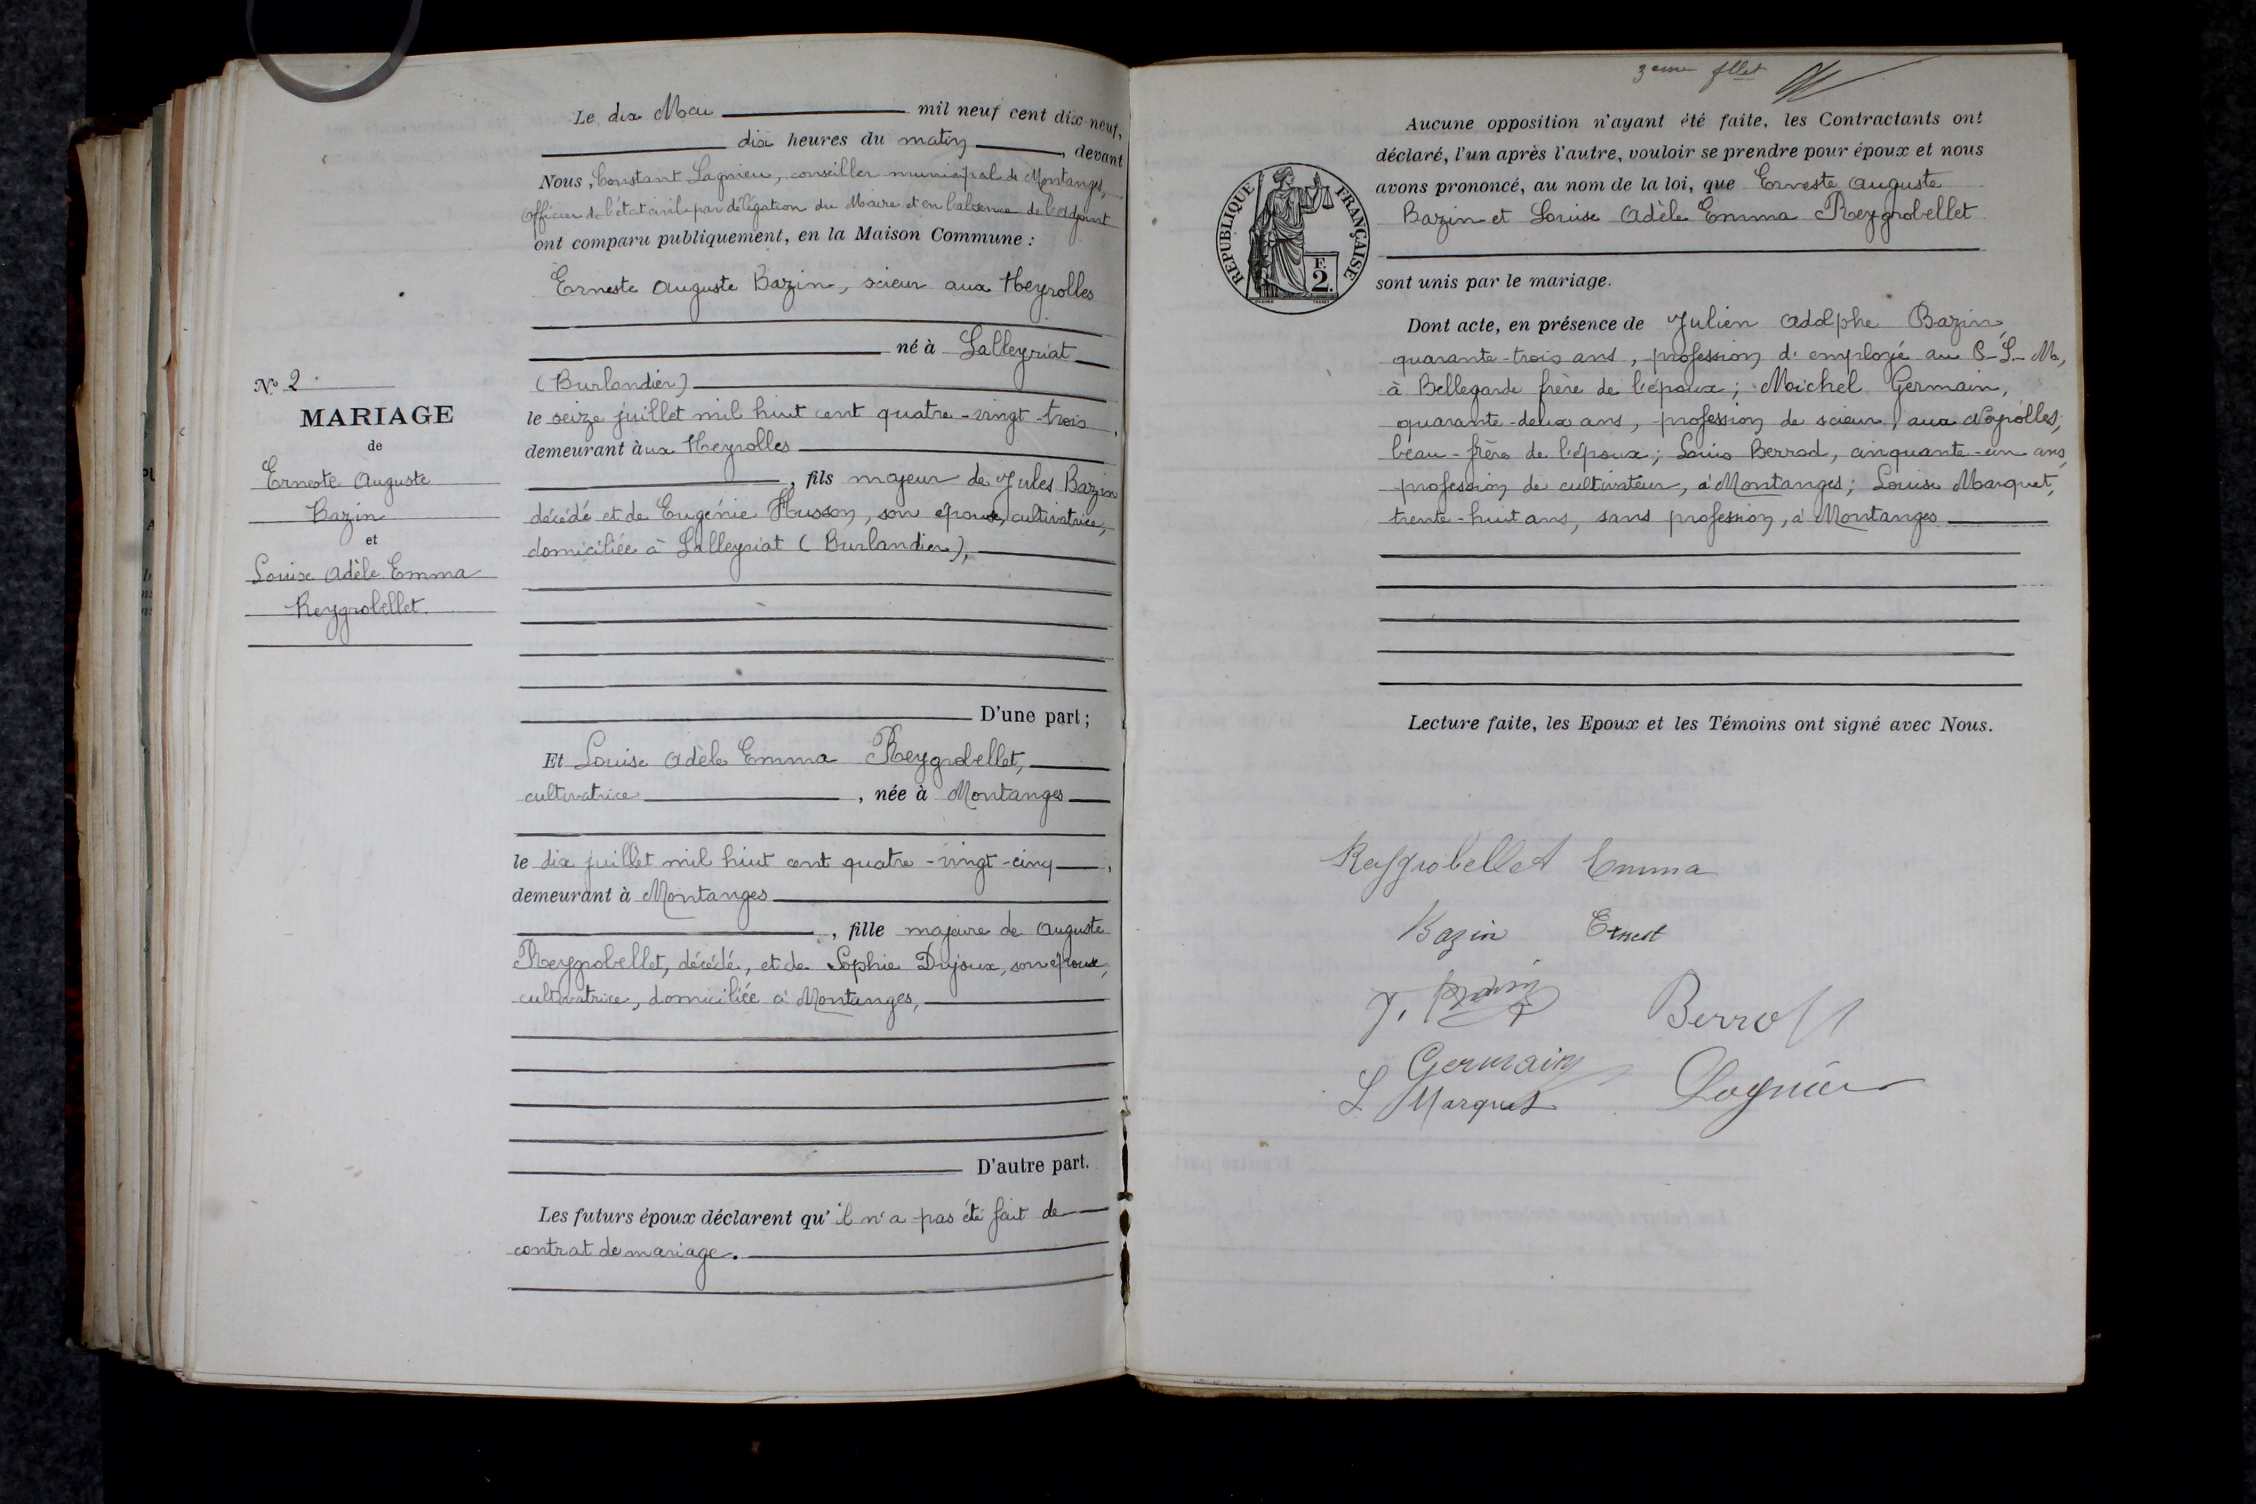 Le dix Mai mil neuf cent dix-neuf,
dix heures du matin, devant
Nous, Constant Lagnieu, conseiller municipal de Montanges,
officier de l'état civil par délégation du Maire et en l'absence de l'adjoint
ont comparu publiquement, en la Maison Commune :
Erneste Auguste Bazin, scieur aux Neyrolles
né à Lalleyriat
(Burlandier)
le seize juillet mil huit cent quatre-vingt-trois,
demeurant aux Neyrolles
, fils majeur de Jules Bazin
décédé et de Eugénie Husson, son épouse, cultivatrice,
domiciliée à Lalleyriat (Burlandier),
D'une part ;
Et Louise Adèle Emma Reygrobellet,
cultivatrice, née à Montanges
le dix juillet mil huit cent quatre-vingt-cinq,
demeurant à Montanges
, fille majeure de Auguste
Reygrobellet, décédé, et de Sophie Dujoux, son épouse,
cultivatrice, domiciliée à Montanges,
D'autre part.
Les futurs époux déclarent qu'il n'a pas été fait de
contrat de mariage.
No 2
MARIAGE
de
Erneste Auguste
Bazin
et
Louise Adèle Emma
Reygrobellet
3eme fllet
Aucune opposition n'ayant été faite, les Contractants ont
déclaré, l'un après l'autre, vouloir se prendre pour époux et nous
avons prononcé, au nom de la loi, que Erneste Auguste
Bazin et Louise Adèle Emma Reygrobellet
sont unis par le mariage.
RÉPUBLIQUE FRANÇAISE
F. 2.
Dont acte, en présence de Julien Adolphe Bazin,
quarante-trois ans, profession d'employé au P-L-M,
à Bellegarde frère de l'époux ; Michel Germain,
quarante-deux ans, profession de scieur, aux Neyrolles,
beau-frère de l'époux ; Louis Berrod, cinquante-un ans,
profession de cultivateur, à Montanges ; Louise Marquet,
trente-huit ans, sans profession, à Montanges
Lecture faite, les Epoux et les Témoins ont signé avec Nous.
Reygrobellet Emma
Bazin Ernest
J. Bazin
Berrod
Germain
L Marquet
Lagnieu